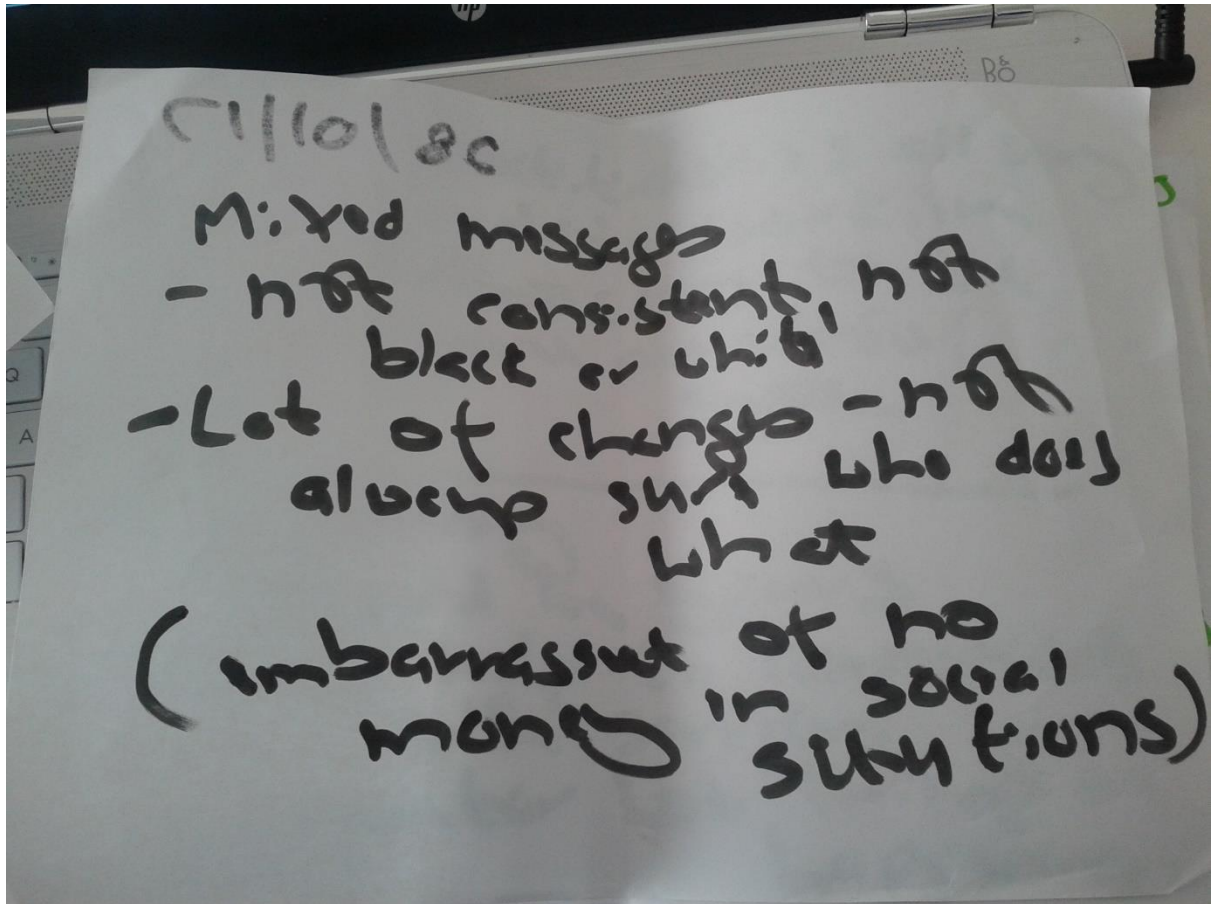 hp
B&O
Mixed messages
- not consistent, not
black or white
-Lot of changes - not
always sure who does
what
( of no
money in social
situations)